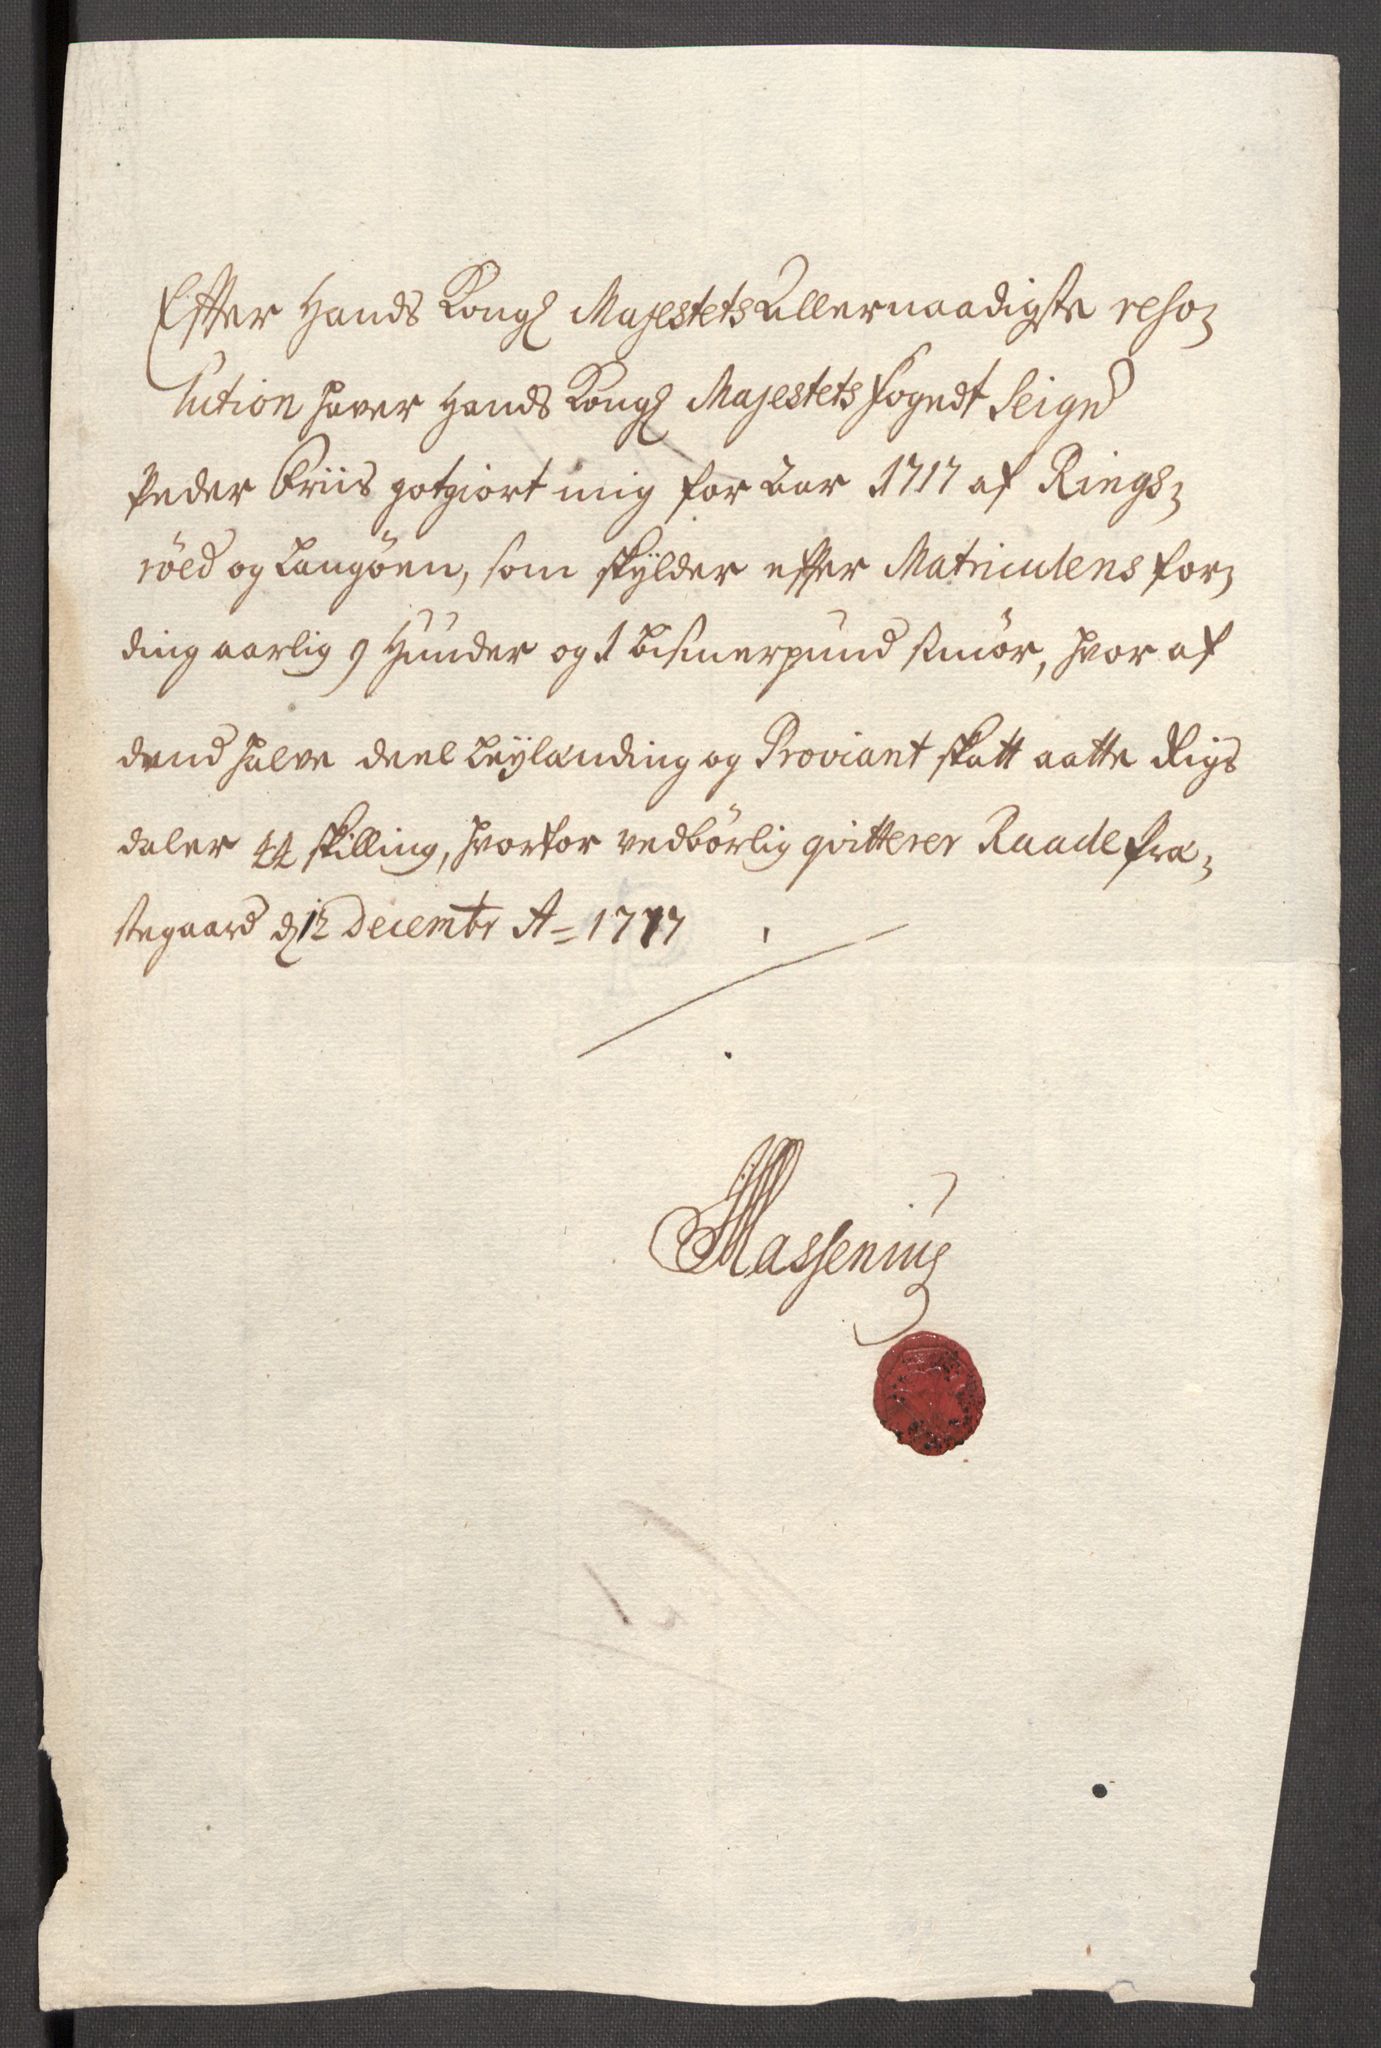 Efter Hands Kongl Majestets Allernaadigste reso-
lution haver Hands Kongl Majestets fogedt Seigr
Peder Friis gotgiort mig for Aar 1717 af Rings-
röed og Langöen, som skylder effter Matriculens for-
ding aarlig 9 Hunder og 1 Bismerpund smör, hvor af
dend halve deel Leylænding og Proviant skatt aatte Rigs
daler 44 skilling, hvorfor vedbörlig qvitterer Raade Præ-
stegaard d 12 Decembr Ao 1717
Massenius